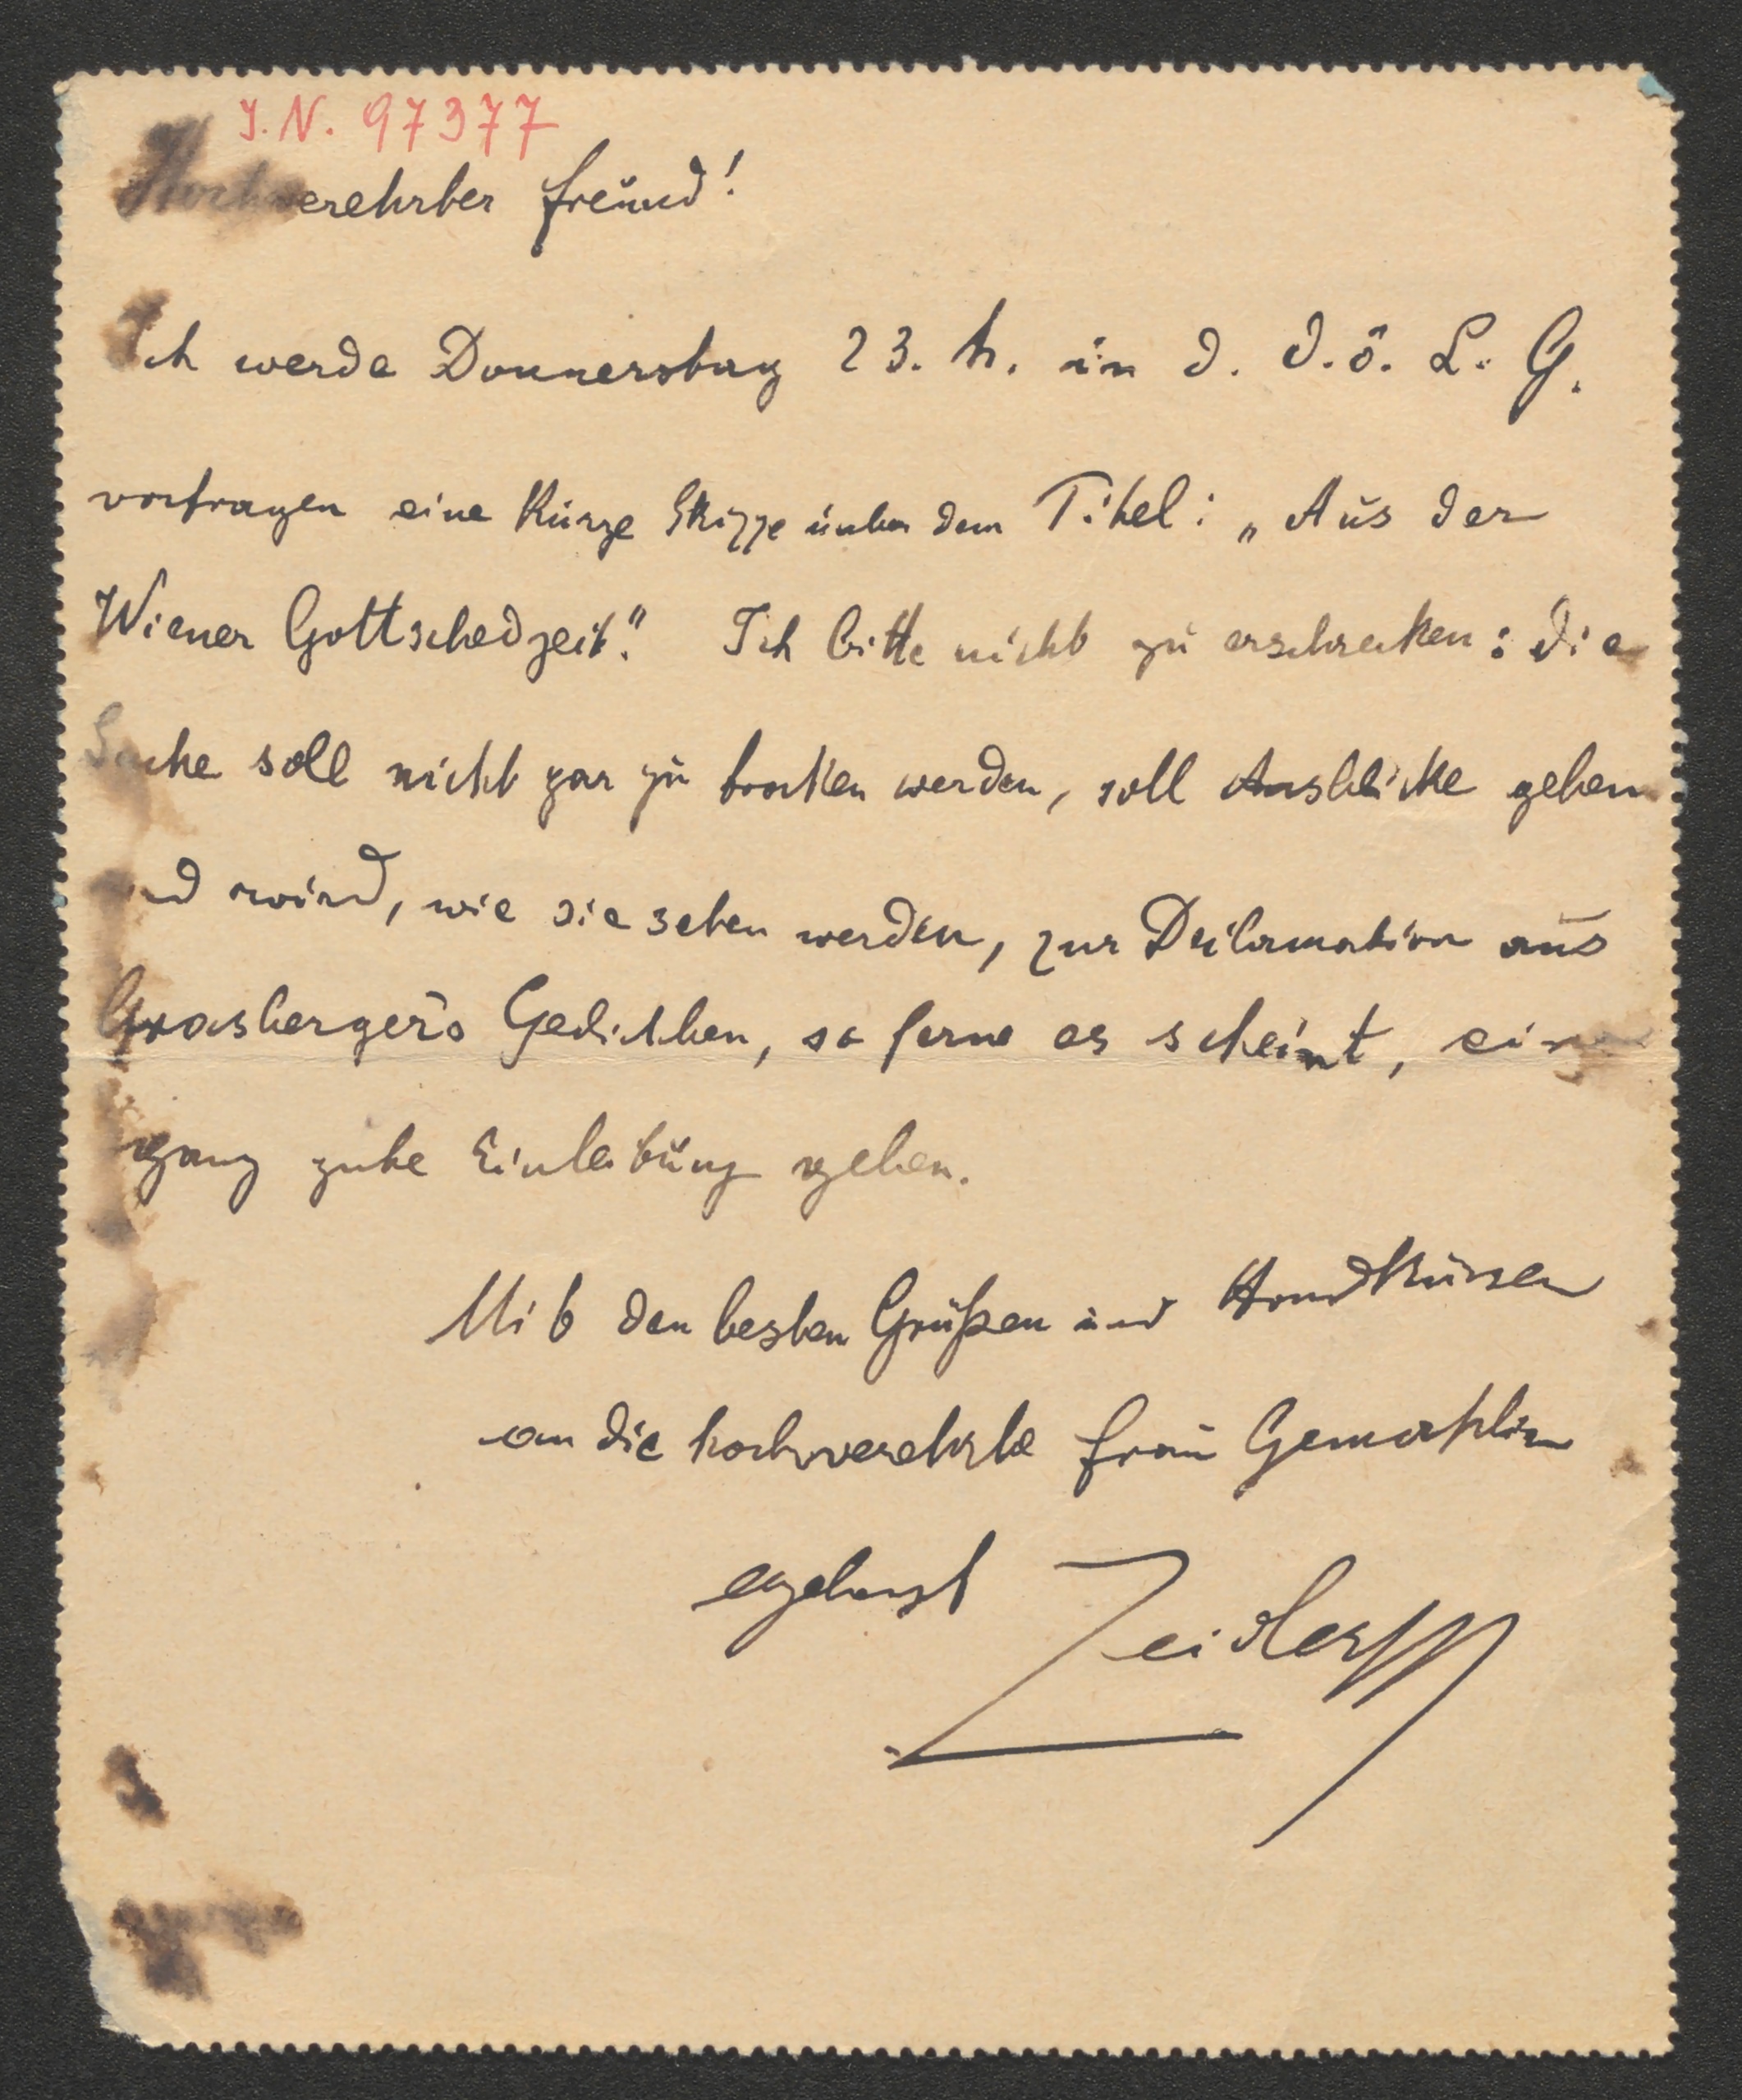 I. N. 97377
Hochverehrter Freund!
Ich werde Donnerstag 23. h. in d. d. ö. L. G.
vortragen eine kurze Skizze unter dem Titel: „Aus der
Wiener Gottschedzeit." Ich bitte nicht zu erschrecken: die
Sache soll nicht gar zu trocken werden, soll Ausblicke geben
und wird, wie sie sehen werden, zur Deklamation aus
Grasberger's Gedichten, so ferne es scheint, eine
ganz gute Einleitung geben.
Mit den besten Grüßen und Handküssen
an die hochverehrte Frau Gemahlin
ergebenst Zeidler